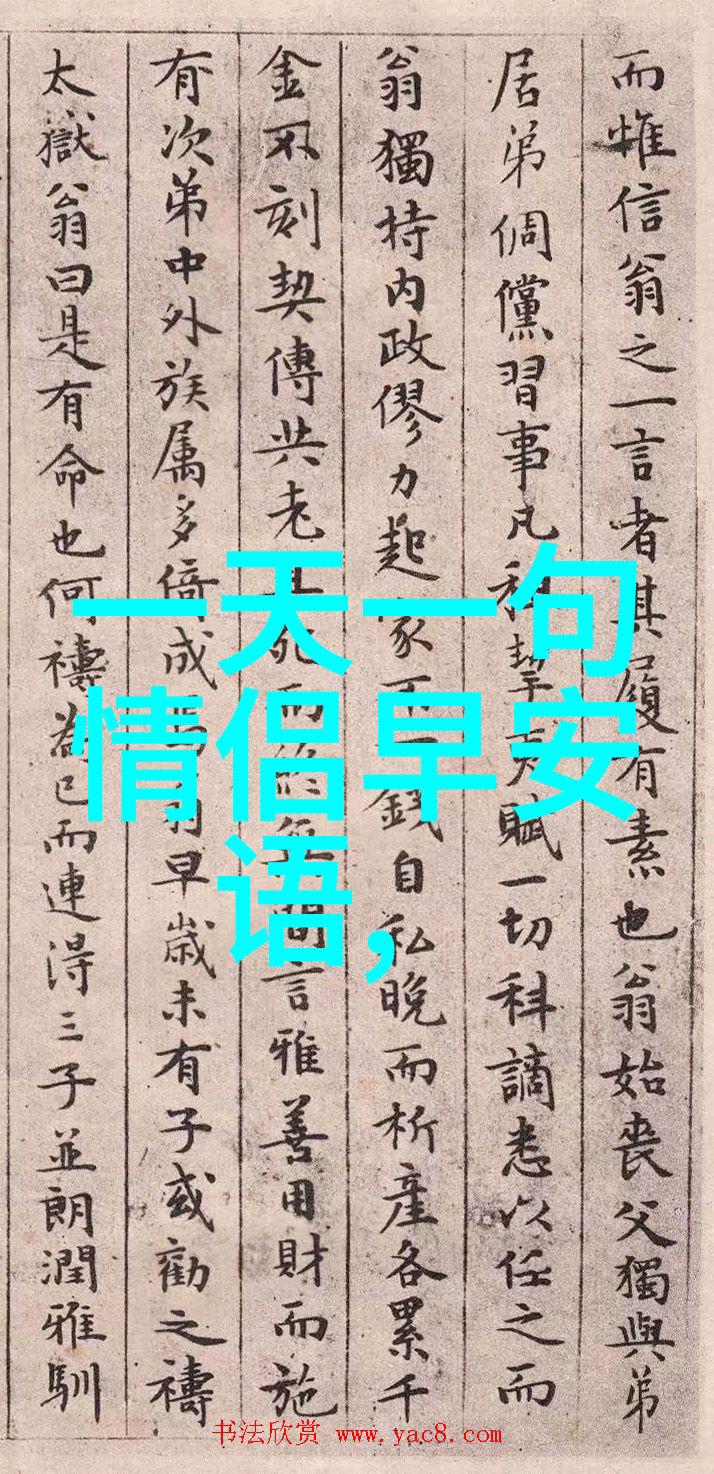 而惟信翁之一言者其履有素也翁始喪父獨與弟
居弟倜儻習事凡租挈夫賦一切科謫悉以任之而
翁獨持内政僇力起家不一錢自私晚而析產各累千
金不刻契傳共老死而終無間言雅善用財而施
有次弟中外族属多倚成焉翁早歲未有子或勸之禱
太嶽翁曰是有命也何禱為已而連得三子並朗潤雅馴
一天一句
情侣早安
语,
书法欣赏 www.yac8.com